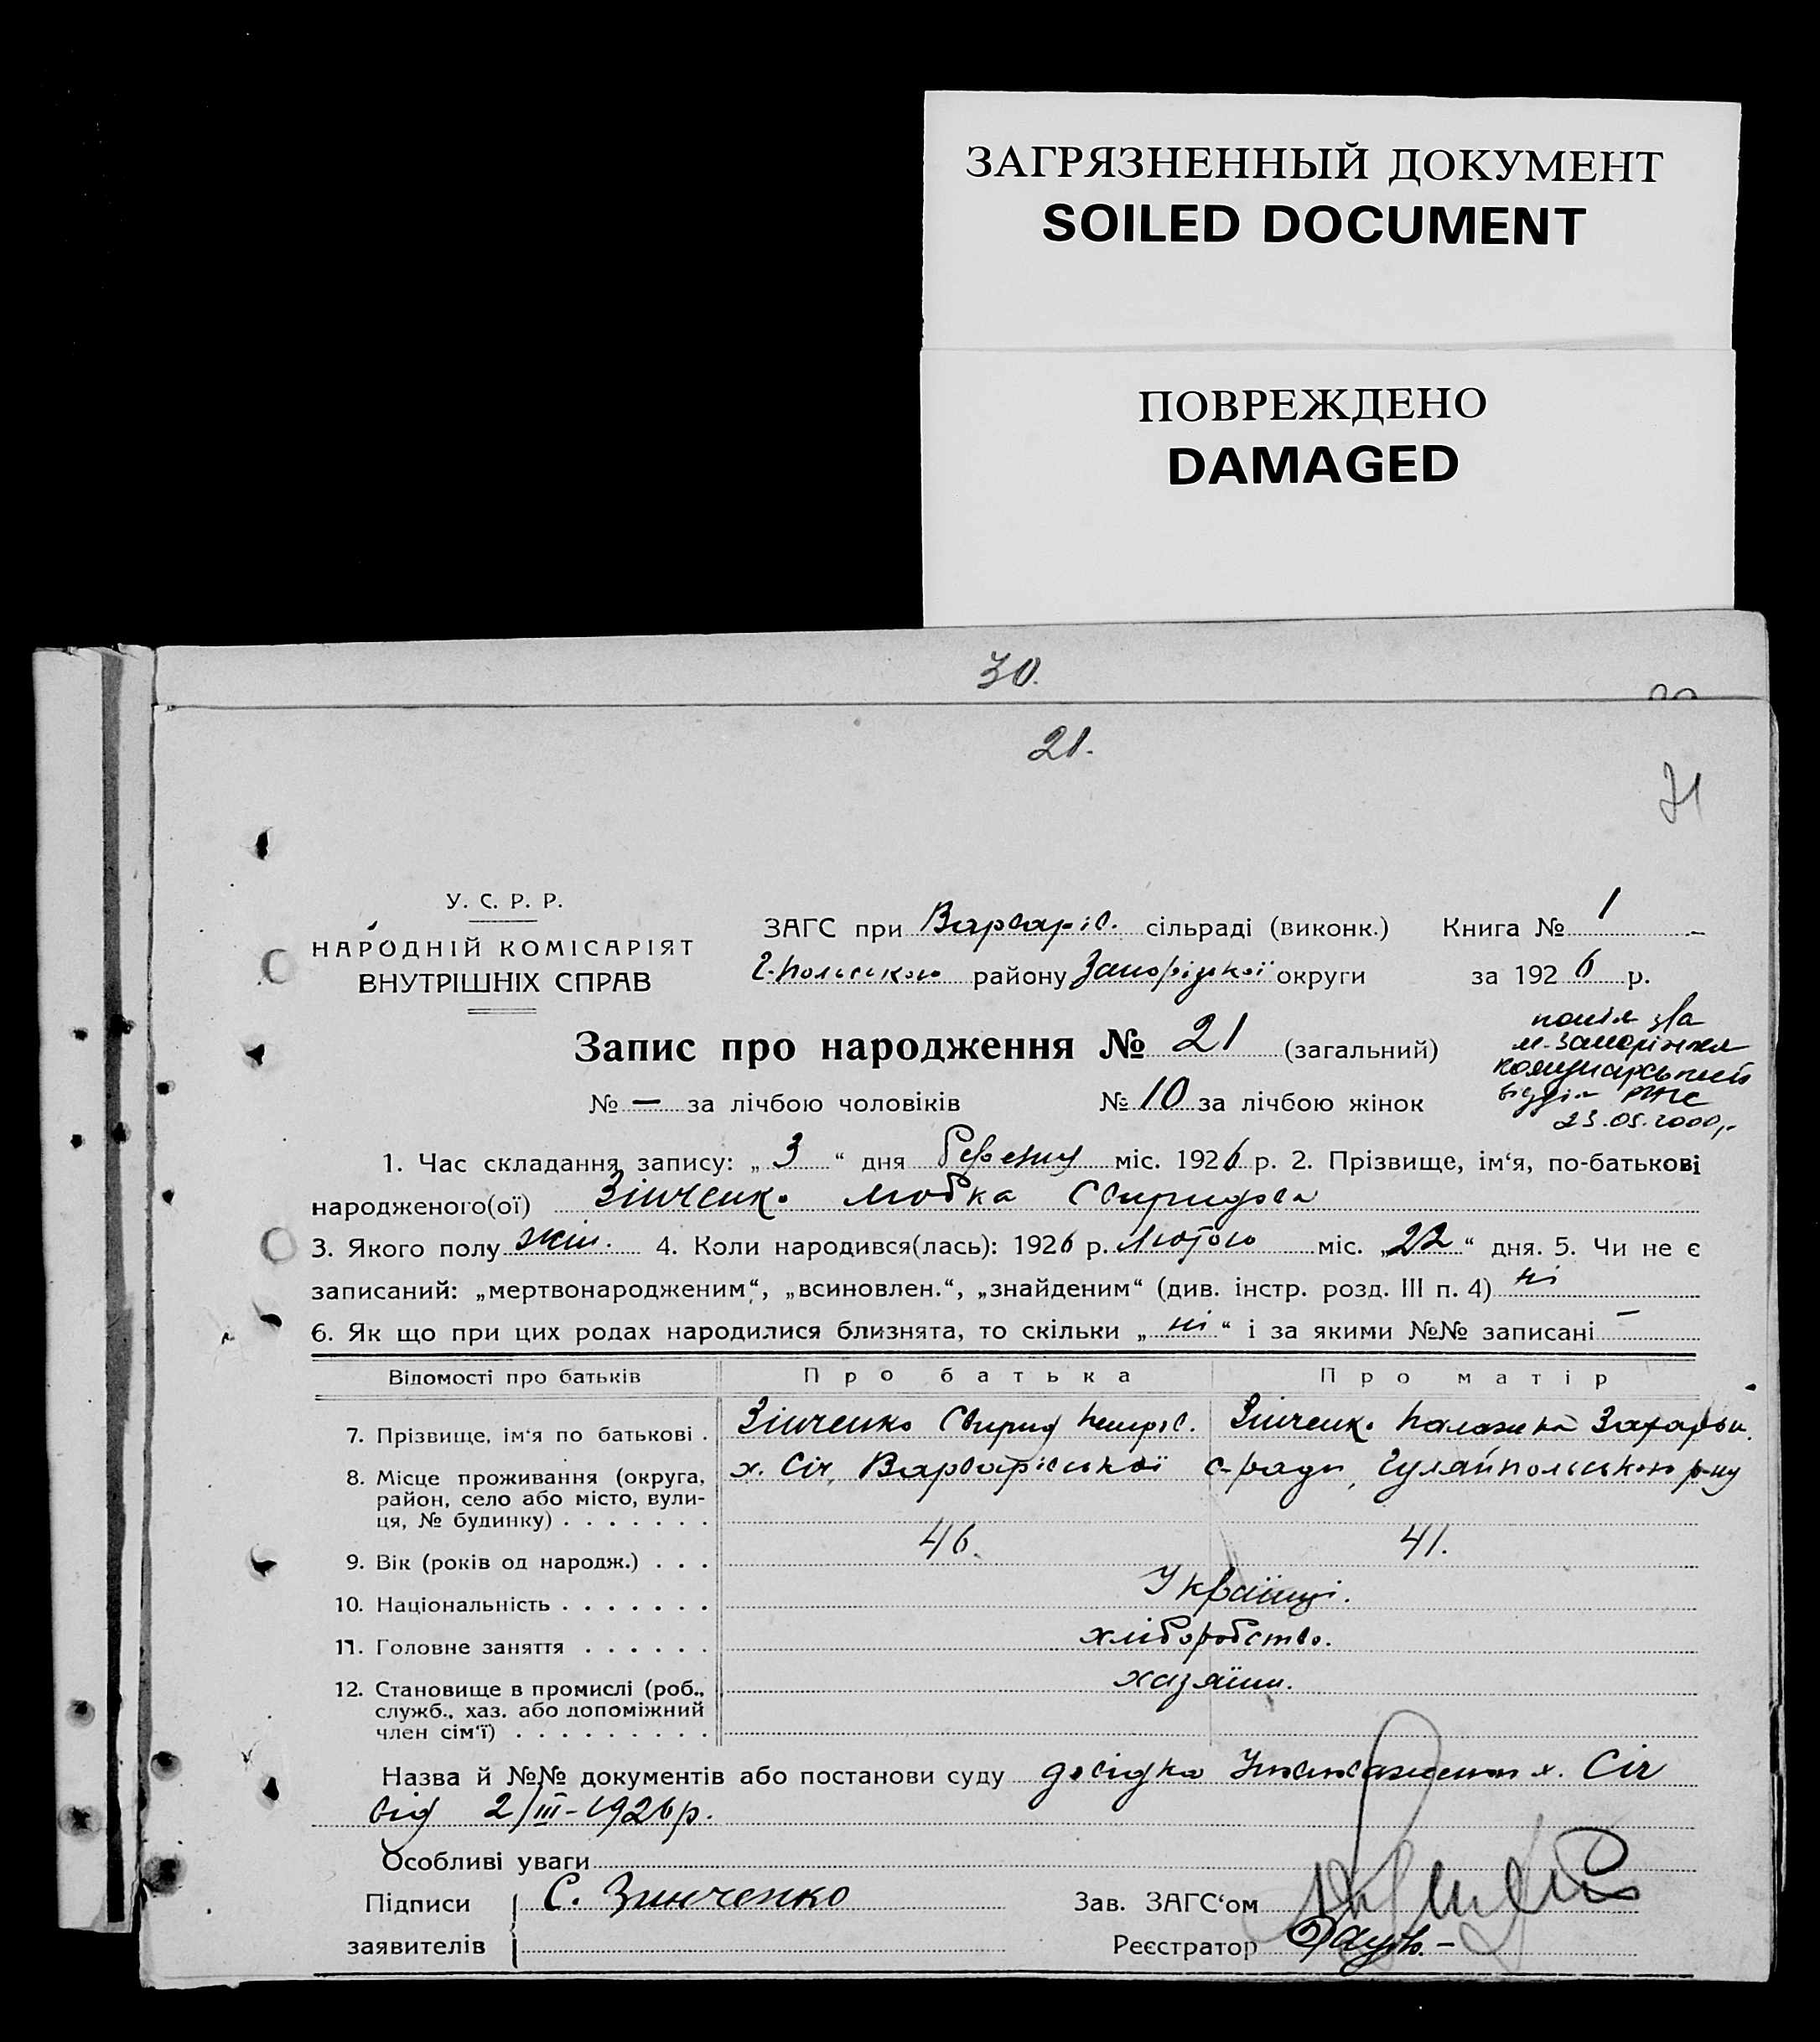 ЗАГРЯЗНЕННЫЙ ДОКУМЕНТ
SOILED DOCUMENT
ПОВРЕЖДЕНО
DAMAGED
30.
21.
У. С. Р. Р.
НАРОДНІЙ КОМІСАРІЯТ
ВНУТРІШНІХ СПРАВ
ЗАГС при Варварів. сільраді (виконк.) Книга № 1
Г-Польського району Запорізької округи за 1926 р.
Запис про народження № 21 (загальний)
№ — за лічбою чоловіків № 10 за лічбою жінок
м. Запоріжжя
23.05.2000р.
1. Час складання запису: „3“ дня березня міс. 1926 р. 2. Прізвище, ім‘я, по-батькові
народженого(ої) Зінченко Любка Свиридова
3. Якого полу жін. 4. Коли народився(лась): 1926 р. Лютого міс. „22“ дня. 5. Чи не є
записаний: „мертвонародженим“, „всиновлен.“, „знайденим“ (див. інстр. розд. III п. 4) ні
6. Як що при цих родах народилися близнята, то скільки „ні“ і за якими №№ записані —
Відомості про батьків Про батька Про матір
7. Прізвище, ім‘я по батькові . Зінченко Свирид Петров. Зінченко Палажка Захарьи.
8. Місце проживання (округа, х. Січ, Варварівської с-ради, Гуляйпольського р-ну
район, село або місто, вули-
ця, № будинку) . . . . . . .
9. Вік (років од народж.) . . . 46. 41.
10. Національність . . . . . . . Українці.
11. Головне заняття . . . . . . хліборобство.
12. Становище в промислі (роб., хазяїни.
служб., хаз. або допоміжний
член сім‘ї) . . . . . . . . .
Назва й №№ документів або постанови суду довідка х. Січ
від 2/III-1926р.
Особливі уваги
Підписи С. Зинченко Зав. ЗАГС‘ом
заявителів Реєстратор